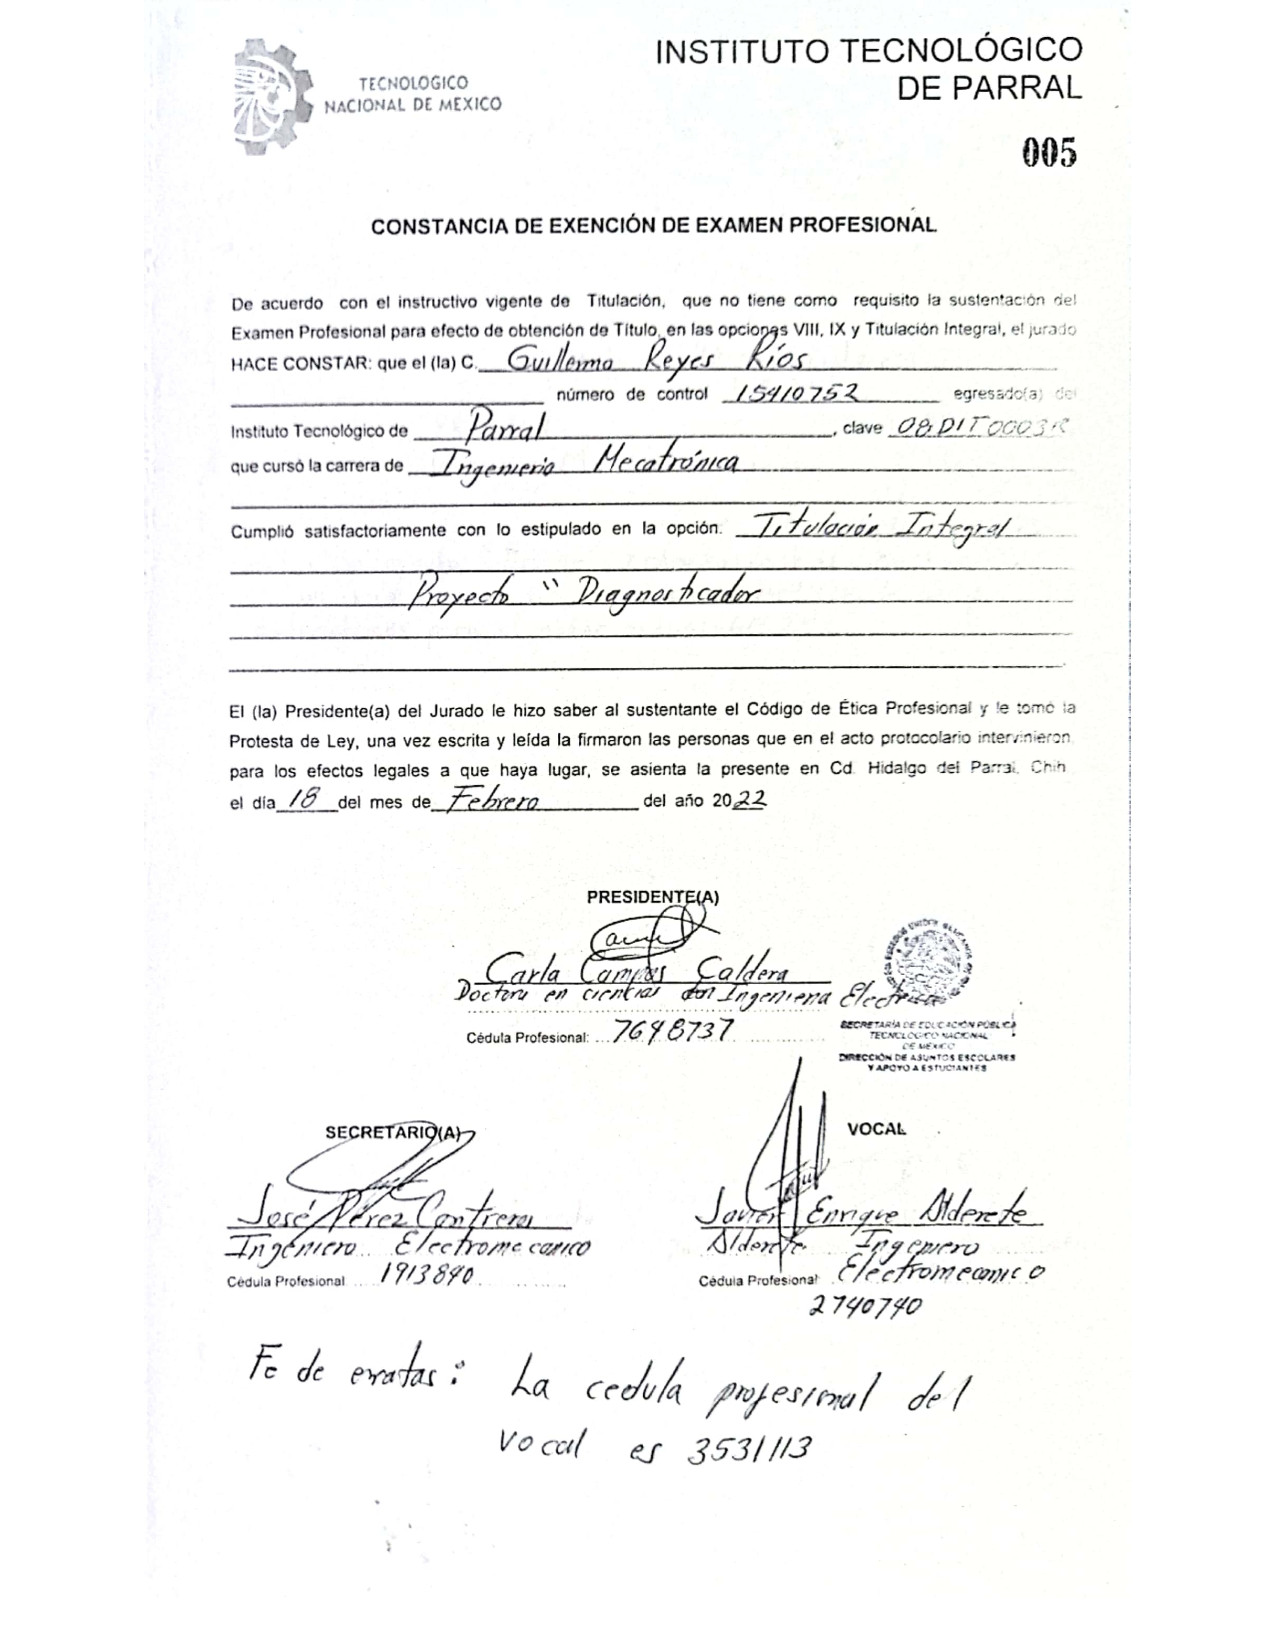 TECNOLOGICO
NACIONAL DE MEXICO
INSTITUTO TECNOLÓGICO
DE PARRAL
005
CONSTANCIA DE EXENCIÓN DE EXAMEN PROFESIONAL
De acuerdo con el instructivo vigente de Titulación, que no tiene como requisito la sustentación del
Examen Profesional para efecto de obtención de Título, en las opciones VIII, IX y Titulación Integral, el jurado
HACE CONSTAR: que el (la) C. Guillermo Reyes Ríos
número de control 15410752 egresado(a) del
Instituto Tecnológico de Parral, clave 08DIT0003R
que cursó la carrera de Ingenieria Mecatrónica
Cumplió satisfactoriamente con lo estipulado en la opción: Titulación Integral
Proyecto " Diagnosticador
El (la) Presidente(a) del Jurado le hizo saber al sustentante el Código de Ética Profesional y le tomó la
Protesta de Ley, una vez escrita y leída la firmaron las personas que en el acto protocolario intervinieron
para los efectos legales a que haya lugar, se asienta la presente en Cd. Hidalgo del Parral, Chih
el día 18 del mes de Febrero del año 2022
PRESIDENTE(A)
Carla Campos Caldera
Doctora en ciencias en Ingenieria Electrica
Cédula Profesional: 7648737
SECRETARÍA DE EDUCACIÓN PÚBLICA
TECNOLÓGICO NACIONAL
DE MÉXICO
DIRECCIÓN DE ASUNTOS ESCOLARES
Y APOYO A ESTUDIANTES
SECRETARIO(A)
José Pérez Contreras
Ingeniero Electromecanico
Cédula Profesional 1913840
VOCAL
Javier Enrique Alderete
Alderete Ingeniero
Cédula Profesional Electromecanico
2740740
Fe de eratas: La cedula profesional del
vocal es 3531113